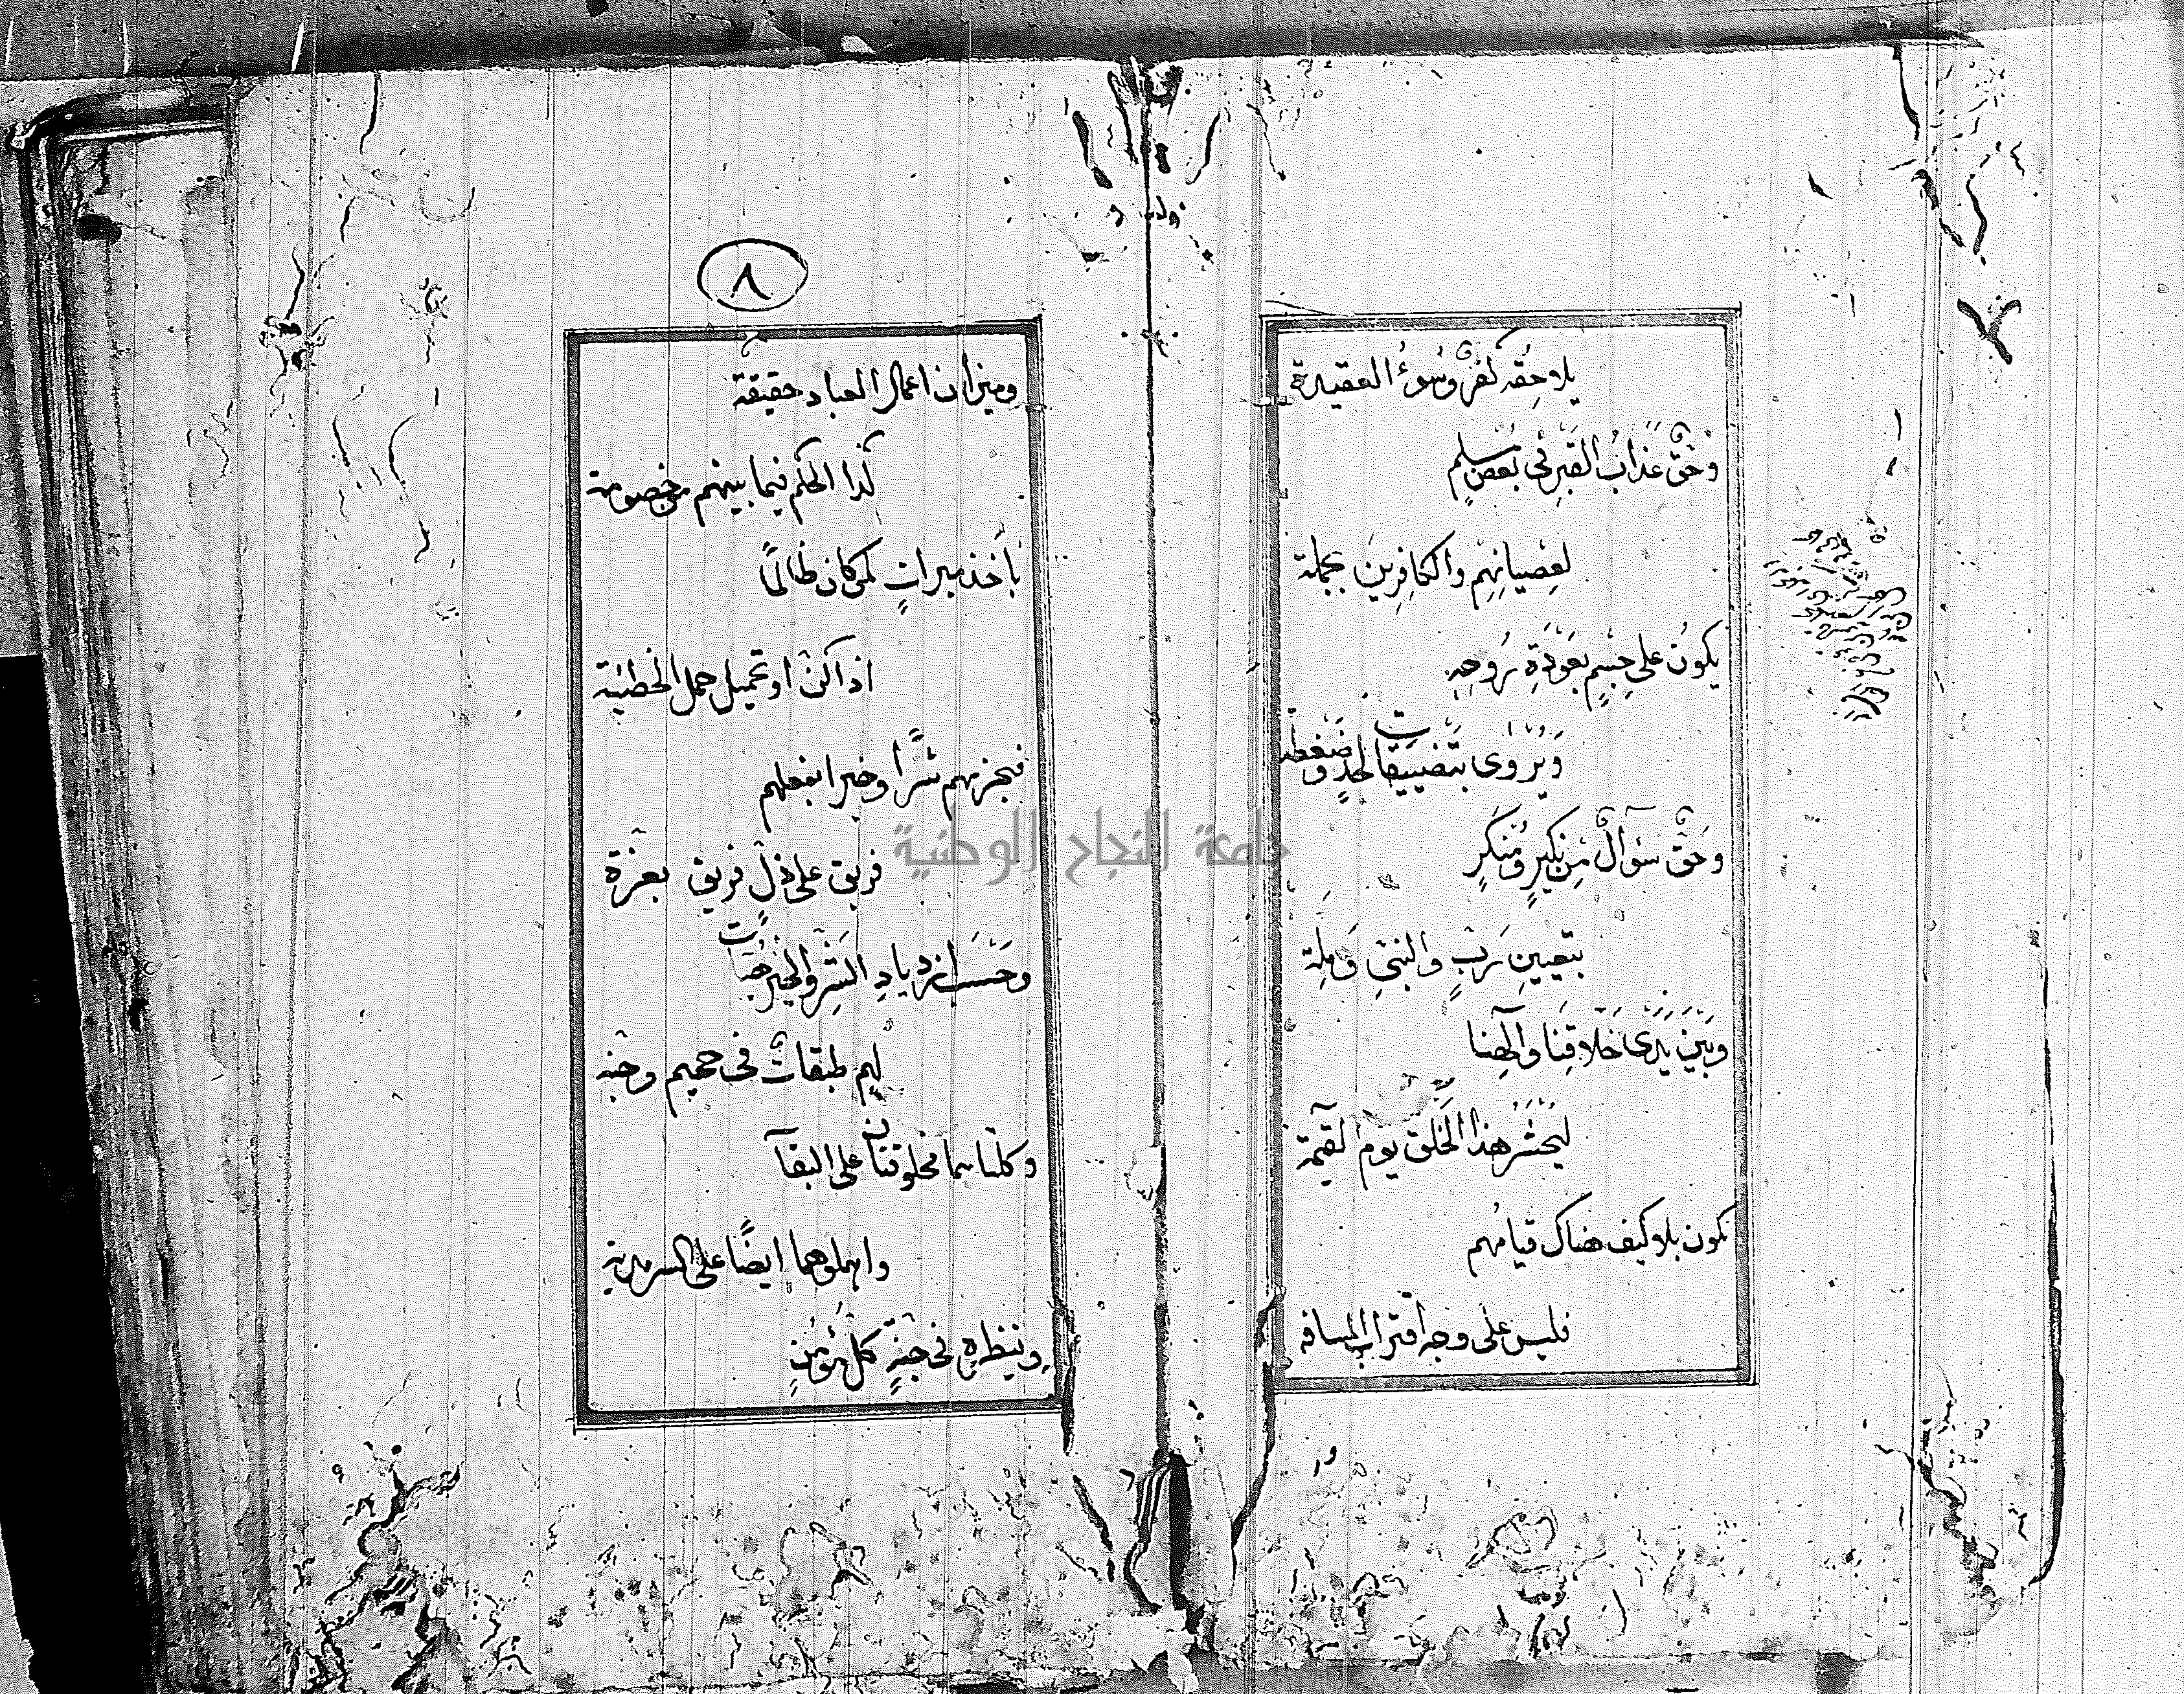 يلاحقه كفر وسوء العقيدة
وحق عذاب القبر في بعض مسلم
لعصيانهم والكافرين بجملة
يكون على جسم بعودة روحه
ويروى بتضييقات لحد وضغطة
وحق سؤال من نكير ومنكر
بتعيين رب والنبي وملة
وبين يدي خلاقنا وآلهنا
ليحشر هذا الخلق يوم القيمة
نكون بلا كيف هناك قيامهم
فليس على وجه اقتراب المسافة
٨
وميزان اعمال العباد حقيقة
كذا الحكم فيما بينهم من خصومة
بأخذ مبرات لمن كان ظالمًا
اذا كن او تحميل حمل الخطيئة
فيجزيهم شرًا وخيرا بفعلهم
فريق على ذل فريق بعزة
وحسب ازدياد الشر والخير
لهم طبقات في جحيم وجنة
وكلتاهما مخلوقتان على البقآ
واهلوهما ايضًا على السرمدية
وينظره في جنة كل مؤمن
جامعة النجاح الوطنية